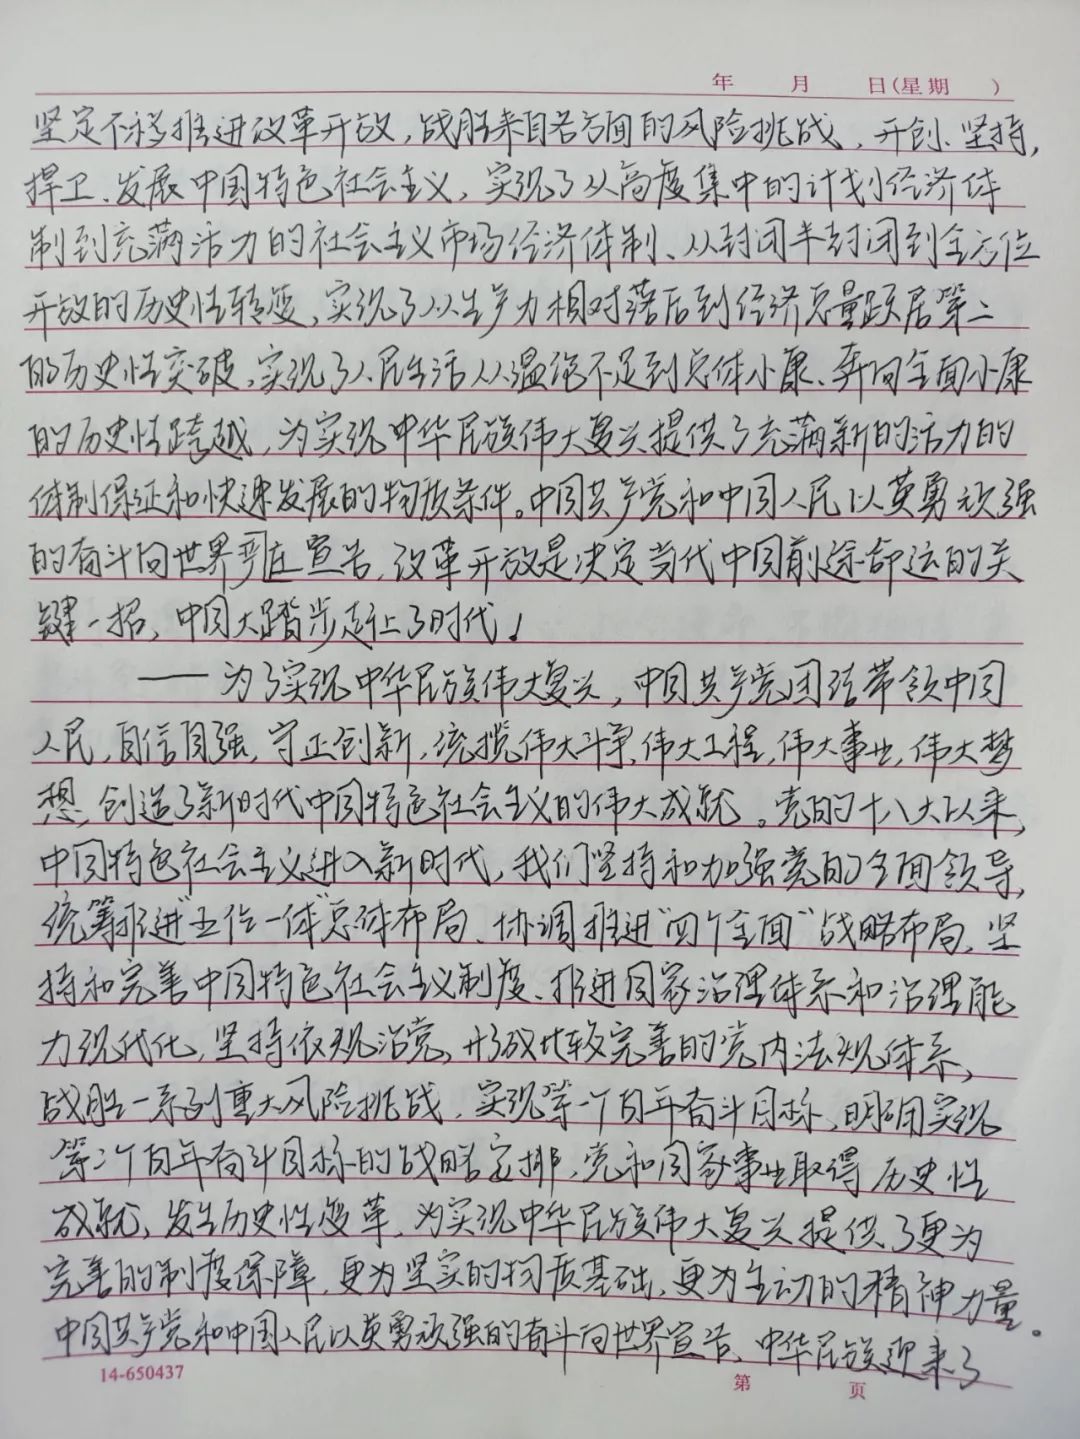 年 月 日(星期 )
坚定不移推进改革开放,战胜来自各方面的风险挑战,开创、坚持,
捍卫、发展中国特色社会主义,实现了从高度集中的计划经济体
制到充满活力的社会主义市场经济体制、从封闭半封闭到全方位
开放的历史性转变,实现了从生产力相对落后到经济总量跃居第二
的历史性突破,实现了人民生活从温饱不足到总体小康、奔向全面小康
的历史性跨越,为实现中华民族伟大复兴提供了充满新的活力的
体制保证和快速发展的物质条件。中国共产党和中国人民以英勇顽强
的奋斗向世界 宣告,改革开放是决定当代中国前途命运的关
键一招,中国大踏步赶上了时代!
——为了实现中华民族伟大复兴,中国共产党团结带领中国
人民,自信自强,守正创新,统揽伟大斗争,伟大工程,伟大事业,伟大梦
想,创造了新时代中国特色社会主义的伟大成就。党的十八大以来,
中国特色社会主义进入新时代,我们坚持和加强党的全面领导,
统筹推进“五位一体”总体布局、协调推进“四个全面”战略布局,坚
持和完善中国特色社会主义制度、推进国家治理体系和治理能
力现代化,坚持依规治党,形成比较完善的党内法规体系,
战胜一系列重大风险挑战,实现第一个百年奋斗目标,明确实现
第二个百年奋斗目标的战略安排,党和国家事业取得历史性
成就,发生历史性变革,为实现中华民族伟大复兴提供了更为
完善的制度保障,更为坚实的物质基础,更为主动的精神力量。
中国共产党和中国人民以英勇顽强的奋斗向世界宣告,中华民族迎来了
14-650437 第 页